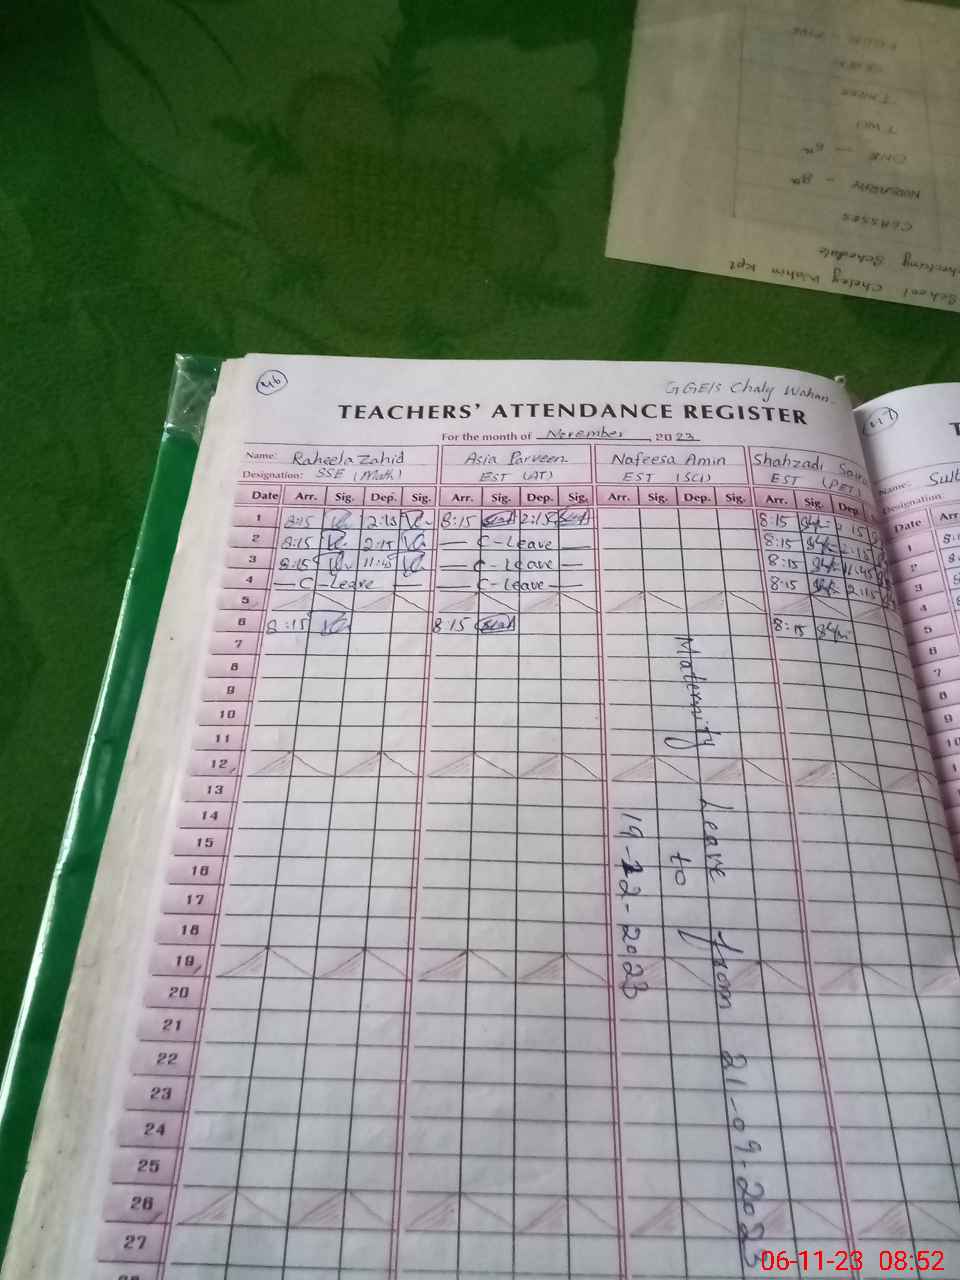 FOUR - FIVE
THREE
TWO
ONE
NURSARAY
CLASSES
Checking Schedule
School Cheley Wahin Kpt
46
GGE/S Chaly Wahan
TEACHERS' ATTENDANCE REGISTER
For the month of November 2023
Name: Raheela Zahid Asia Parveen Nafeesa Amin Shahzadi
Designation: SSE (Math) EST (AT) EST (SCI) EST (PET)
Date Arr. Sig. Dep. Sig. Arr. Sig. Dep. Sig. Arr. Sig. Dep. Sig. Arr. Sig. Dep.
1 8:15 2:15 8:15 2:15 8:15 2:15
2 8:15 2:15 — C-Leave — 8:15 2:15
3 8:15 11:45 — C-Leave — 8:15 11:45
4 — C-Leave — — C-Leave — 8:15 2:15
5
6 8:15 8:15 8:15
7
8
9
10
11
12
13
14
15
16
17
18
19
20
21
22
23
24
25
26
27
Maternity Leave from 21-09-2023
to
19-12-2023
47
T
Name: Sult
Designation
Date Arr.
1
2
3
4
5
6
7
8
9
10
06-11-23 08:52